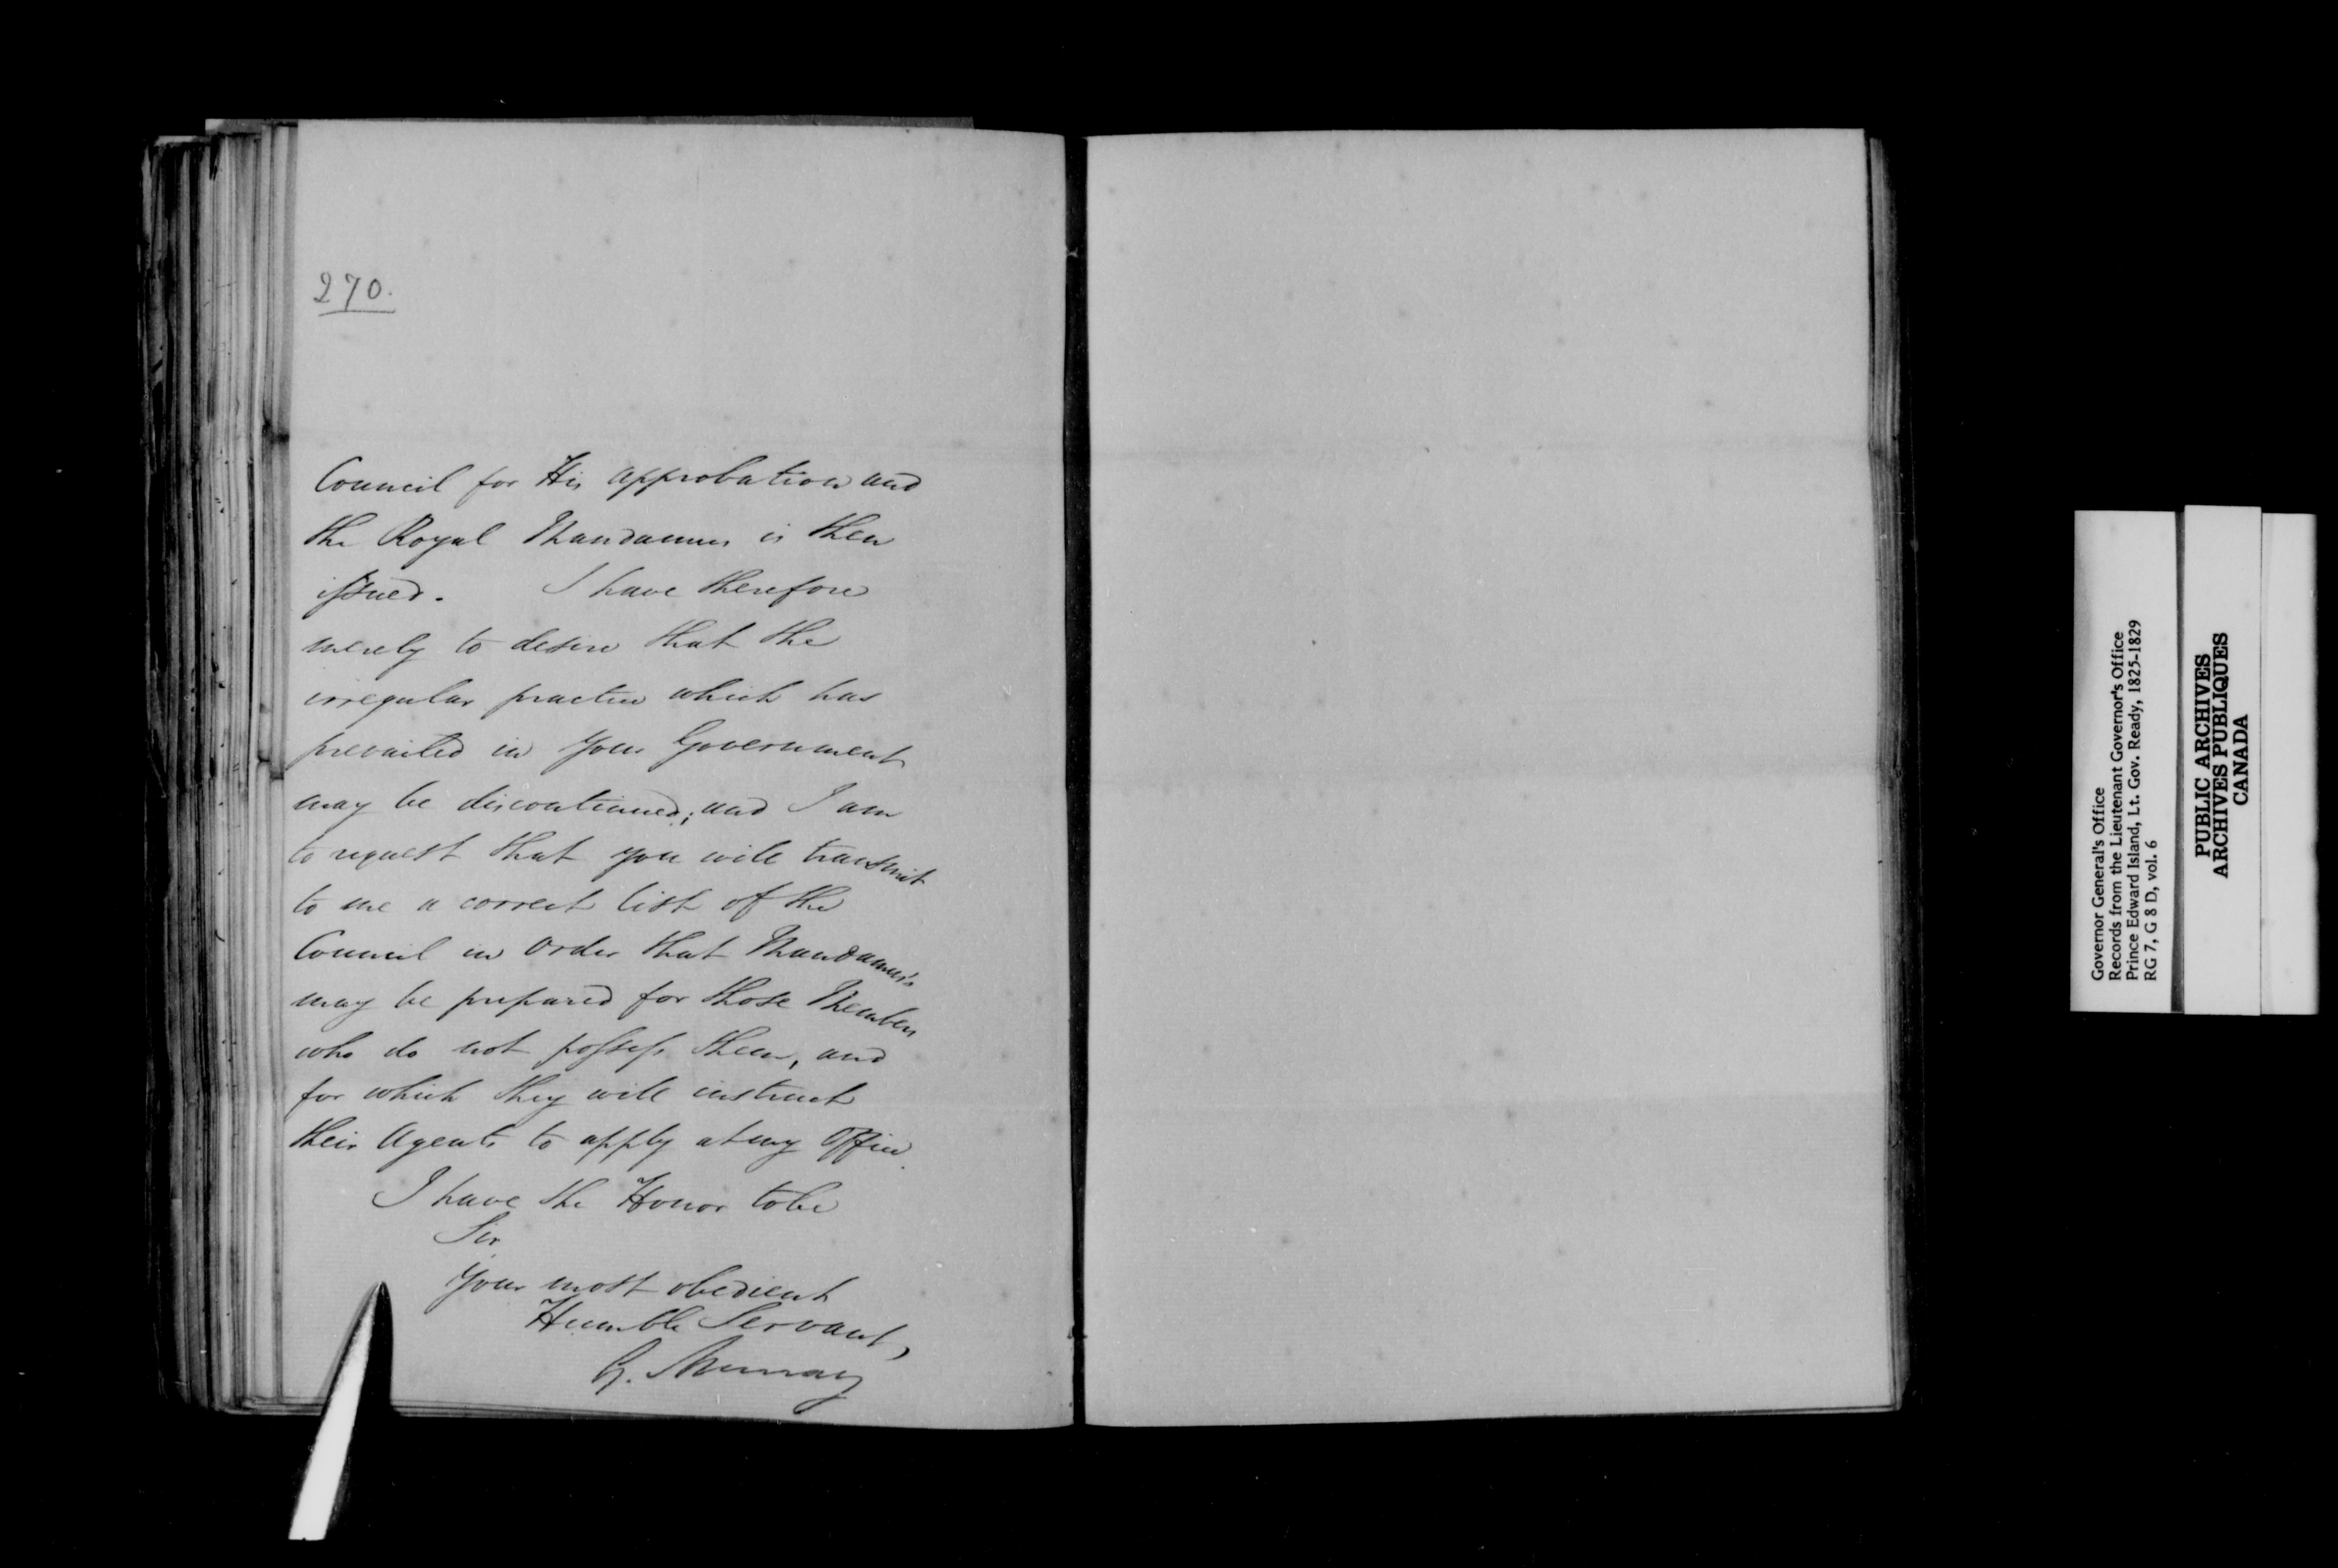 270.
Council for His approbation and
the Royal Mandamus is then
issued. I have therefore
merely to desire that the
irregular practice which has
prevailed in Your Government
may be discontinued; and I am
to request that you will transmit
to me a correct list of the
Council in Order that Mandamus's
may be prepared for those Members
who do not possess them, and
for which they will instruct
their Agents to apply at my Office.
I have the Honor to be
Sir,
Your most obedient
Humble Servant,
G. Murray
Governor General's Office
Records from the Lieutenant Governor's Office
Prince Edward Island, Lt. Gov. Ready, 1825-1829
RG 7, G 8 D, vol. 6
PUBLIC ARCHIVES
ARCHIVES PUBLIQUES
CANADA